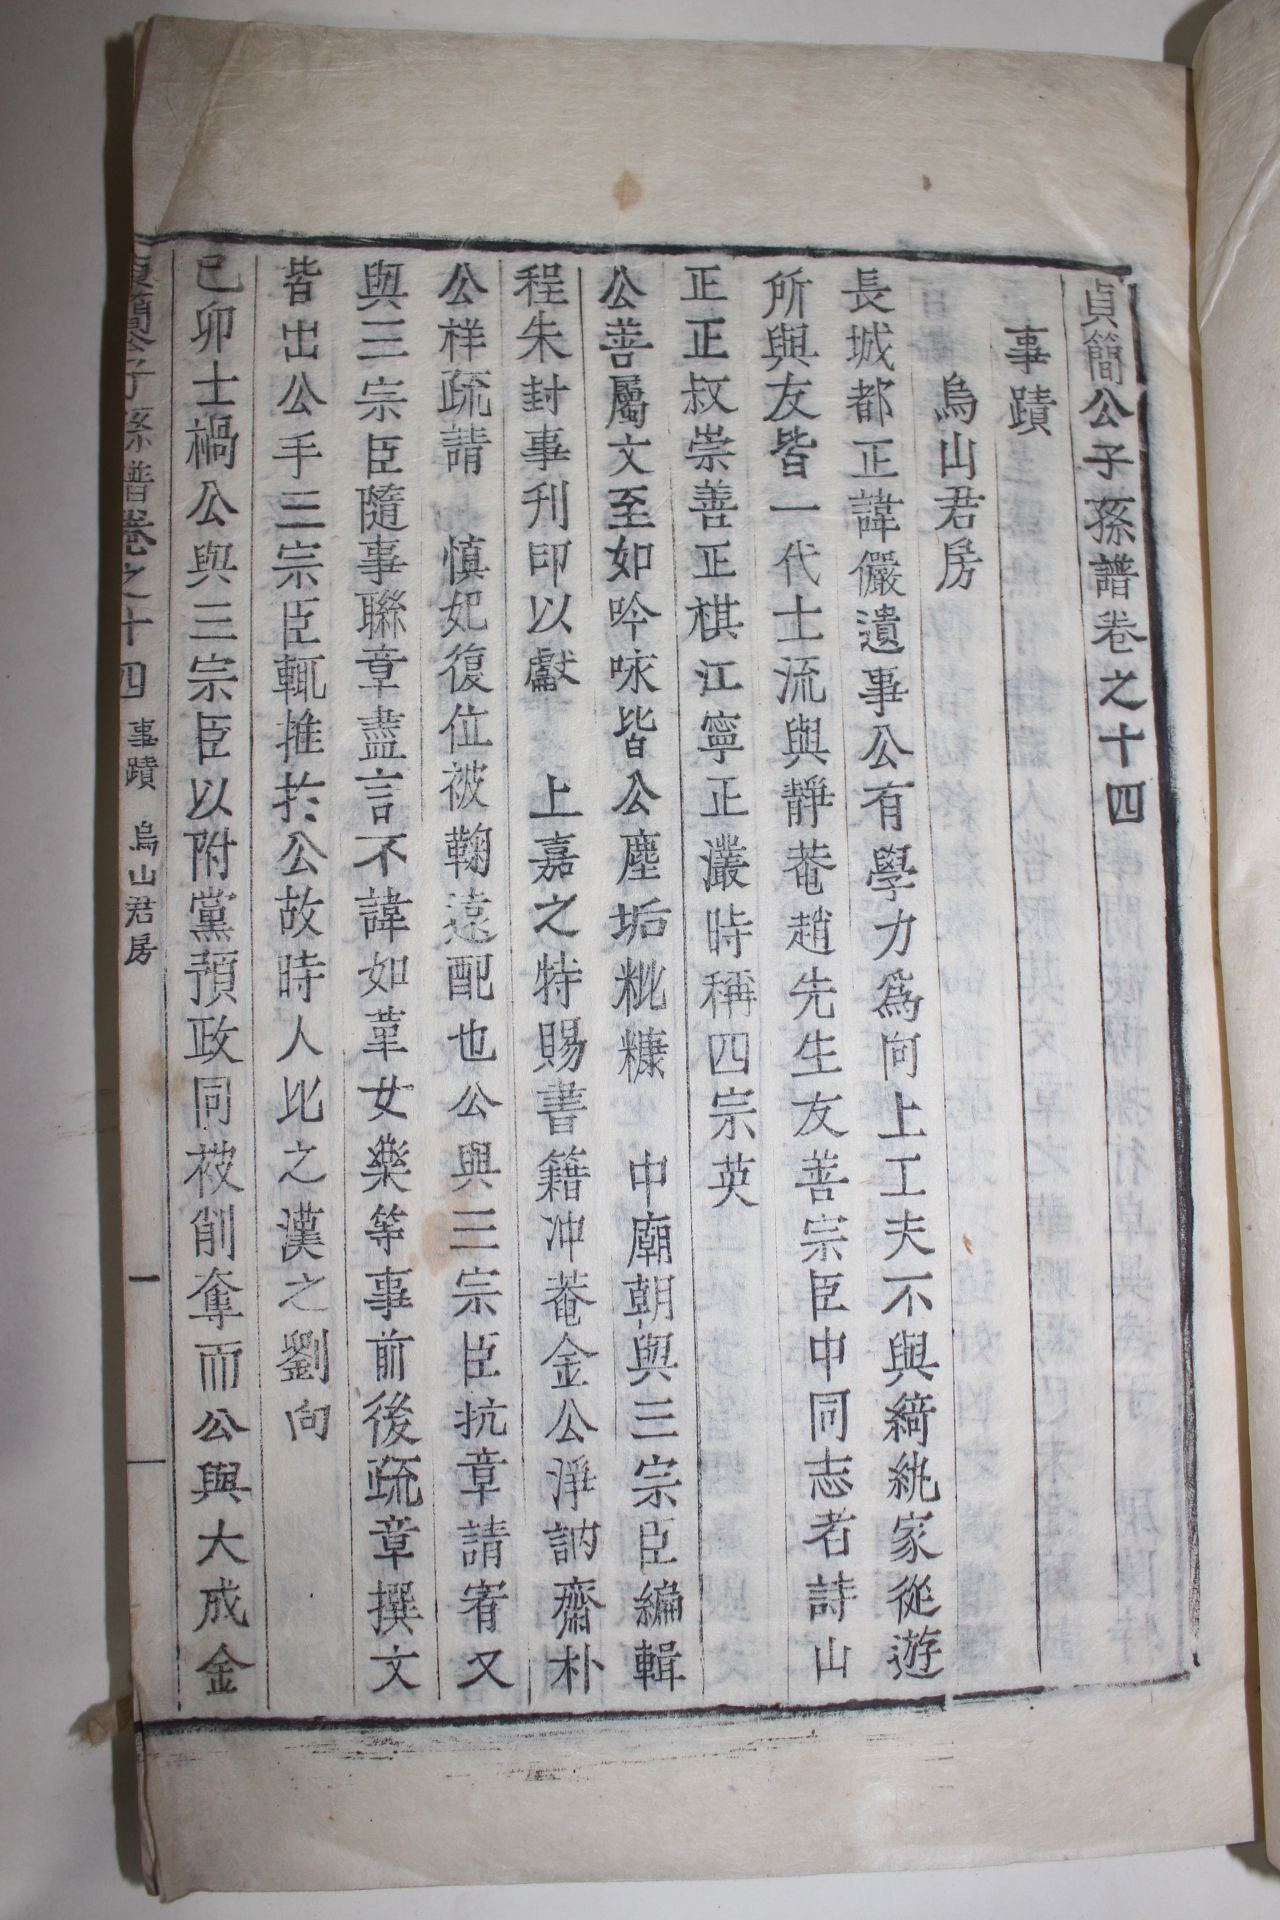 貞簡公子孫譜卷之十四
事蹟
烏山君房
長城都正諱儼遺事公有學力爲向上工夫不與綺紈家從遊
所與友皆一代士流與靜菴趙先生友善宗臣中同志者詩山
正正叔崇善正棋江寧正灇時稱四宗英
公善屬文至如吟咏皆公塵垢粃糠 中廟朝與三宗臣編輯
程朱封事刊印以獻 上嘉之特賜書籍冲菴金公淨訥齋朴
公样疏請 愼妃復位被鞫遠配也公與三宗臣抗章請宥又
與三宗臣隨事聯章盡言不諱如革女樂等事前後疏章撰文
皆出公手三宗臣輒推扵公故時人比之漢之劉向
己卯士禍公與三宗臣以附黨預政同被削奪而公與大成金
貞簡公子孫譜卷之十四 事蹟 烏山君房 一